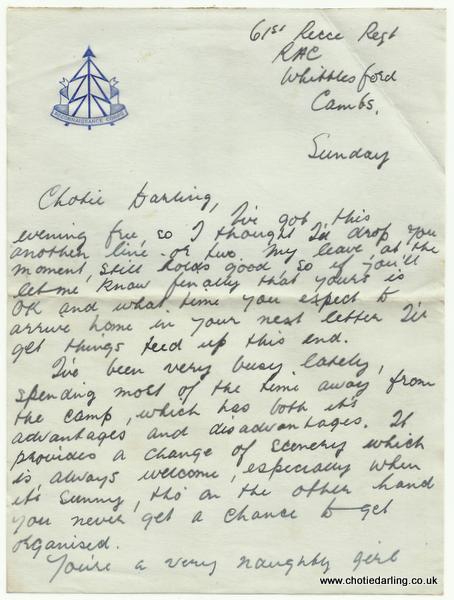 61st Recce Regt
RAC
Whittlesford
Cambs.
Sunday
RECONNAISSANCE CORPS
Chotie Darling,
I've got this
evening free so I thought I'd drop you
another line or two. My leave at the
moment, still holds good so if you'll
let me know finally that yours is
OK and what time you expect to
arrive home in your next letter I'll
get things teed up this end.
I've been very busy lately,
spending most of the time away from
the camp, which has both it's
advantages and disadvantages. It
provides a change of scenery which
is always welcome, especially when
it's sunny, tho' on the other hand
you never get a chance to get
organised.
You're a very naughty girl
www.chotiedarling.co.uk